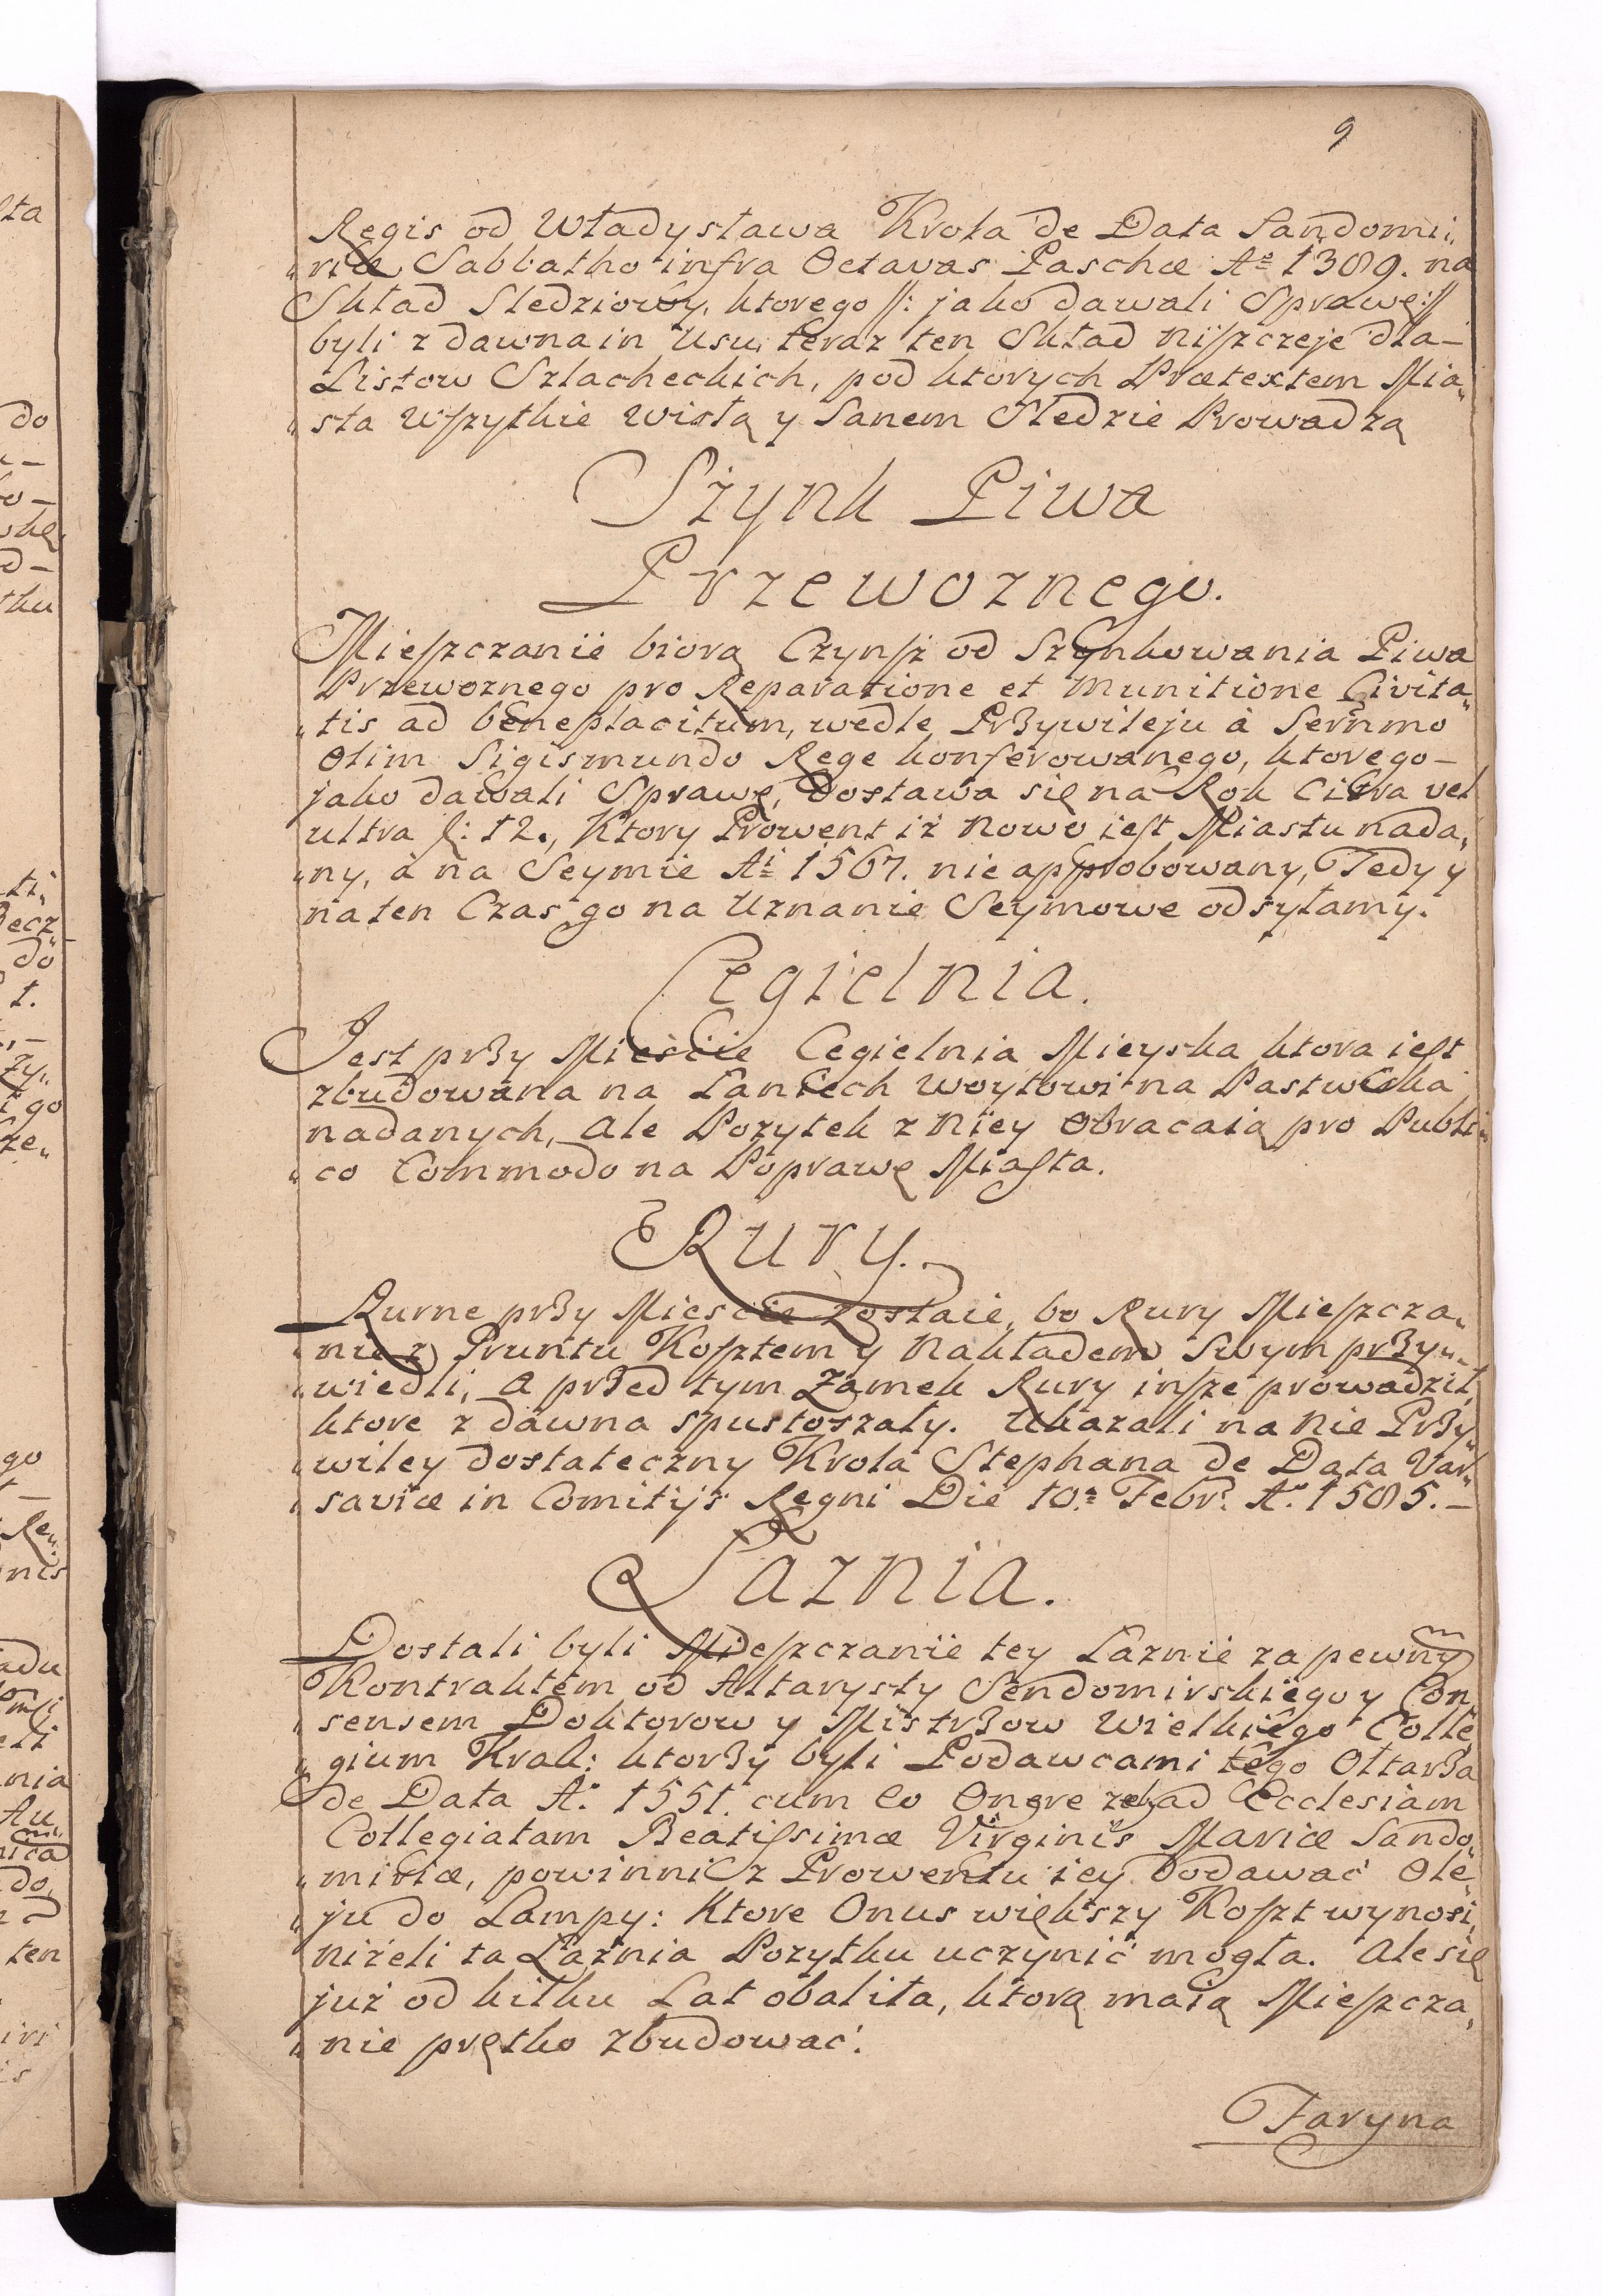 9
Regis od Władysława Krola de Data Sandomi„
„riæ Sabbatho infra Octavas Paschæ Aº 1389. na
Skład Sledziowy, ktorego //: jako dawali Sprawę ://
byli z dawna in Usu, teraz ten Skład niszczeje dla –
Listow Szlacheckich, pod ktorych Prætextem Mia„
„sta wszytkie wisłą y Sanem Sledzie Prowadzą
Szynk Piwa
Przewoznego.
Mieszczanie biorą Czynsz od Szynkowania Piwa
Przewoznego pro Reparatione et Munitione Civita„
„tis ad beneplacitum, wedle Przywileju à Serñmo
Olim Sigismundo Rege konferowanego, ktorego –
jako dawali Sprawę, Dostawa się na Rok Citra vel
ultra f: 12., Ktory Prowent iż nowo iest Miastu nada„
„ny, à na Seymie Aⁱ 1567. nie approbowany, Tedy y
na ten Czas go na Uznanie Seymowe odsyłamy.
Cegielnia.
Jest przy Mieście Cegielnia Mieyska ktora iest
zbudowana na Laniech woytowi na Pastwiska
nadanych, Ale Pozytek z niey Obracaią pro Publi„
„co Commodo na Poprawę Miasta.
Rury.
Rurne przy Miescie zostaie, bo Rury Mieszcza„
„nie z Gruntu Kosztem y Nakładem Swym przy„
„wiedli, A przed tym Zamek Rury insze prowadził,
ktore z dawna spustoszały. Ukazali na nie Przy„
„wiley dostateczny Krola Stephana de Data Var„
„saviæ in Comitijs Regni Die 10ª Febr. Aº 1585. –
Łaznia.
Dostali byli Mieszczanie tey Łaznie za pewnym
Kontraktem od Altarysty Sendomirskiego y Con„
„sensem Doktorow y Mistrzow Wielkiego Colle„
„gium Krak: ktorzy byli Podawcami tego Ołtarza
de Data Aº 1551. cum eo Onere zeby ad Ecclesiam
Collegiatam Beatissimæ Virginis Mariæ Sando„
„miriæ, powinni z Prowentu iey dodawać Ole„
„ju do Lampy: Ktore Onus większy Koszt wynosi,
niżeli ta Łaźnia Pozytku uczynić mogła. Ale się
już od kilku Lat obaliła, ktorą maią Mieszcza„
„nie prętko zbudować.
Taryna